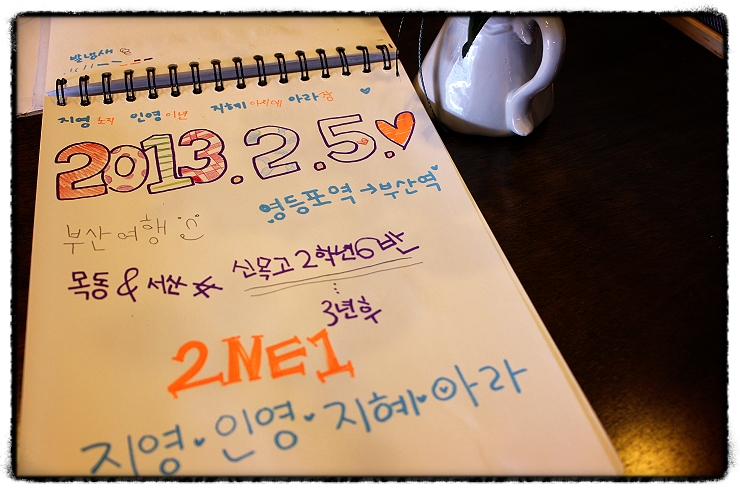 발냄새
지영 인영 지혜 아라
2013.2.5.
영등포역→부산역
부산여행
목동 & 서산 신목고 2학년 6반
3년후
2NE1
지영·인영·지혜·아라